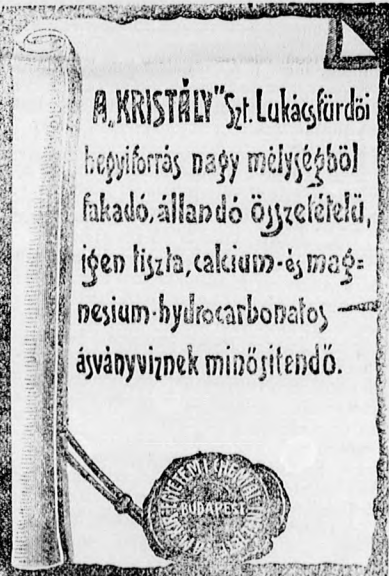 A „KRISTÁLY" Szt. Lukácsfürdői
hegyiforrás nagy mélységböl
fakadó, állandó összetételü,
igen tiszta, calcium-és mag=
nesium-hydrocarbonatos
ásványviznek minősitendő.
BUDAPEST